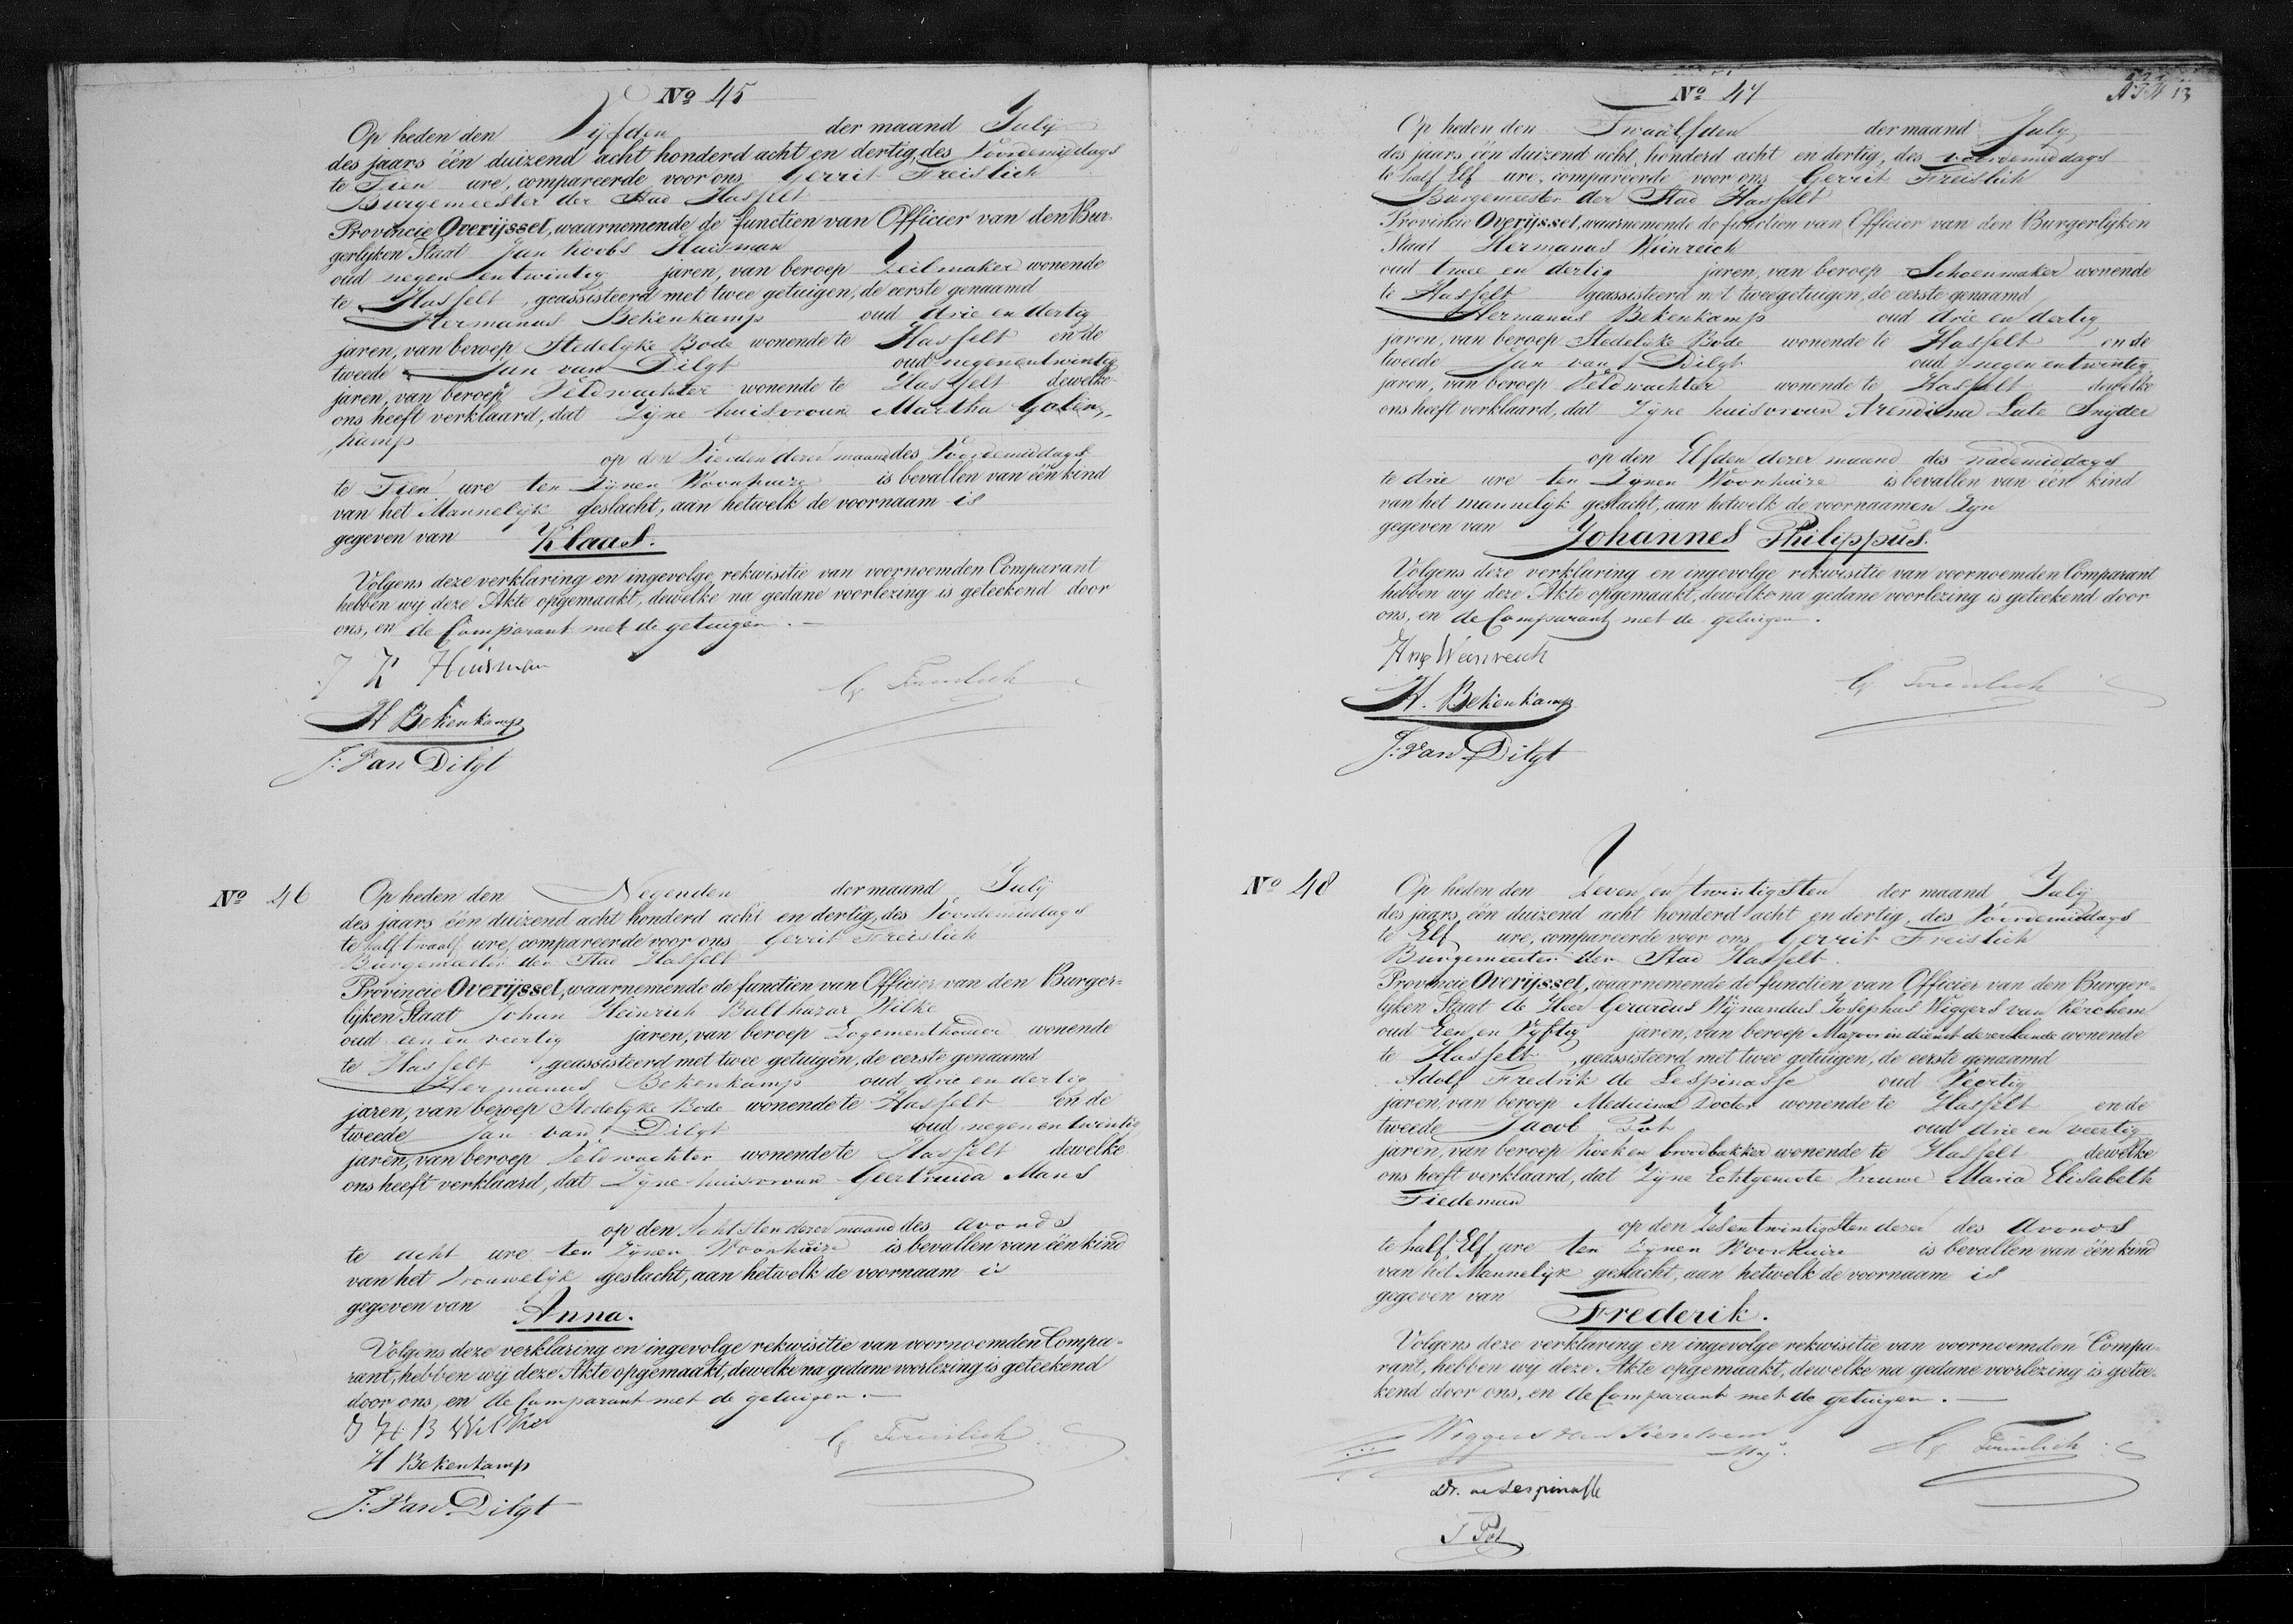 Nº 45
Op heden den Vijfden der maand Julij
des jaars één duizend acht honderd acht en dertig, des Voordemiddags
te Tien ure, compareerde voor ons Gerrit Freislich
Burgemeester der Stad Hasselt
Provincie Overijssel, waarnemende de functien van Officier van den Bur-
gerlijken Staat Jan Koobs Huisman
oud negen en twintig jaren, van beroep Zeilmaker wonende
te Hasselt, geassisteerd met twee getuigen, de eerste genaamd
Hermanus Bekenkamp oud drie en dertig
jaren, van beroep Stedelijke Bode wonende te Hasselt en de
tweede Jan van Dilgt oud negenentwintig
jaren, van beroep Veldwachter wonende te Hasselt dewelke
ons heeft verklaard, dat Zijne huisvrouw Martha
kamp
op den Vierden dezer maand des Voordemiddags
te Tien ure ten Zijnen Woonhuize is bevallen van één kind
van het Mannelijk geslacht, aan hetwelk de voornaam is
gegeven van Klaas.
Volgens deze verklaring en ingevolge rekwisitie van voornoemden Comparant
hebben wij deze Akte opgemaakt, dewelke na gedane voorlezing is geteekend door
ons, en de Comparant met de getuigen.
J K Huisman
G Freislich
H Bekenkamp
J: Van Dilgt
Nº 46
Op heden den Negenden der maand Julij
des jaars één duizend acht honderd acht en dertig, des Voordemiddags
te half twaalf ure, compareerde voor ons Gerrit Freislich
Burgemeester der Stad Hasselt
Provincie Overijssel, waarnemende de functien van Officier van den Burger-
lijken Staat Johan Heinrich Balthazar Wilke
oud een en veertig jaren, van beroep Logementhouder wonende
te Hasselt, geassisteerd met twee getuigen, de eerste genaamd
Hermanus Bekenkamp oud drie en dertig
jaren, van beroep Stedelijke Bode wonende te Hasselt en de
tweede Jan van Dilgt oud negen en twintig
jaren, van beroep Veldwachter wonende te Hasselt dewelke
ons heeft verklaard, dat Zijne huisvrouw Geertruida Mans
op den Achtsten dezer maand des avonds
te acht ure ten Zijnen Woonhuize is bevallen van één kind
van het Vrouwelijk geslacht, aan hetwelk de voornaam is
gegeven van Anna.
Volgens deze verklaring en ingevolge rekwisitie van voornoemden Compa-
rant, hebben wij deze Akte opgemaakt, dewelke na gedane voorlezing is geteekend
door ons, en de Comparant met de getuigen.
J H B Wilke
G Freislich
H Bekenkamp
J: Van Dilgt
Nº 47
Op heden den Twaalfden der maand July
des jaars één duizend acht honderd acht en dertig, des voordemiddags
te half Elf ure, compareerde voor ons Gerrit Freislich
Burgemeester der Stad Hasselt
Provincie Overijssel, waarnemende de functien van Officier van den Burgerlijken
Staat Hermanus Weinreich
oud twee en dertig jaren, van beroep Schoenmaker wonende
te Hasselt geassisteerd met twee getuigen, de eerste genaamd
Hermanus Bekenkamp oud drie en dertig
jaren, van beroep Stedelijke Bode wonende te Hasselt en de
tweede Jan van Dilgt oud negen en twintig
jaren, van beroep Veldwachter wonende te Hasselt dewelke
ons heeft verklaard, dat Zijne huisvrouw Arendina Lute Snijder
op den Elfden dezer maand des nademiddags
te drie ure ten Zijnen Woonhuize is bevallen van één kind
van het mannelijk geslacht, aan hetwelk de voornaamen Zijn
gegeven van Johannes Philippus.
Volgens deze verklaring en ingevolge rekwisitie van voornoemden Comparant
hebben wij deze Akte opgemaakt, dewelke na gedane voorlezing is geteekend door
ons, en de Comparant met de getuigen.
Hms Weinreich
G Freislich
H. Bekenkamp
J: Van Dilgt
Nº 48
Op heden den Zeven en twintigsten der maand July
des jaars één duizend acht honderd acht en dertig, des Voordemiddags
te Elf ure, compareerde voor ons Gerrit Freislich
Burgemeester der Stad Hasselt.
Provincie Overijssel, waarnemende de functien van Officier van den Burger-
lijken Staat de Heer Gerardus Wijnandus Josephus Wiggers van Kerchem
oud Een en Vijftig jaren, van beroep Majoor in dienst dezer lande wonende
te Hasselt, geassisteerd met twee getuigen, de eerste genaamd
Adolf Fredrik de Lespinasse oud Veertig
jaren, van beroep Medicina Doctor wonende te Hasselt en de
tweede Jacob Pot oud drie en veertig
jaren, van beroep Koek en broodbakker wonende te Hasselt dewelke
ons heeft verklaard, dat Zijne Echtgenoote Vrouwe Maria Elisabeth
Tiedeman
op den Zesentwintigsten dezer des avonds
te half Elf ure ten Zijnen Woonhuize is bevallen van één kind
van het Mannelijk geslacht, aan hetwelk de voornaam is
gegeven van Frederik.
Volgens deze verklaring en ingevolge rekwisitie van voornoemden Compa-
rant, hebben wij deze Akte opgemaakt, dewelke na gedane voorlezing is getee-
kend door ons, en de Comparant met de getuigen.
Wiggers van Kerchem
Maj.
G Freislich
Dr. de Lespinasse
J Pot